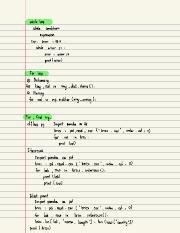 while loop
while condition :
expression
error = 50.0
while error > 1 :
error = error / 4
print (error)
For loop
Dictionary
for key , val in my_dict . items () :
Numpy
for val in np . nditer (my_array) :
import pandas as pd
brics = pd . read_csv ( " brics . csv " , index_col = 0 )
for val in brics :
print (val)
import pandas as pd
brics = pd . read_csv ( " brics . csv " , index_col = 0 )
for lab , row in brics . iterrows () :
print (lab)
print (row)
import pandas as pd
brics = pd . read_csv ( " brics . csv " , index_col = 0 )
for lab , row in brics . iterrows () :
brics . loc [ lab , " name_length " ] = len ( row [ " country " ] )
print ( brics )